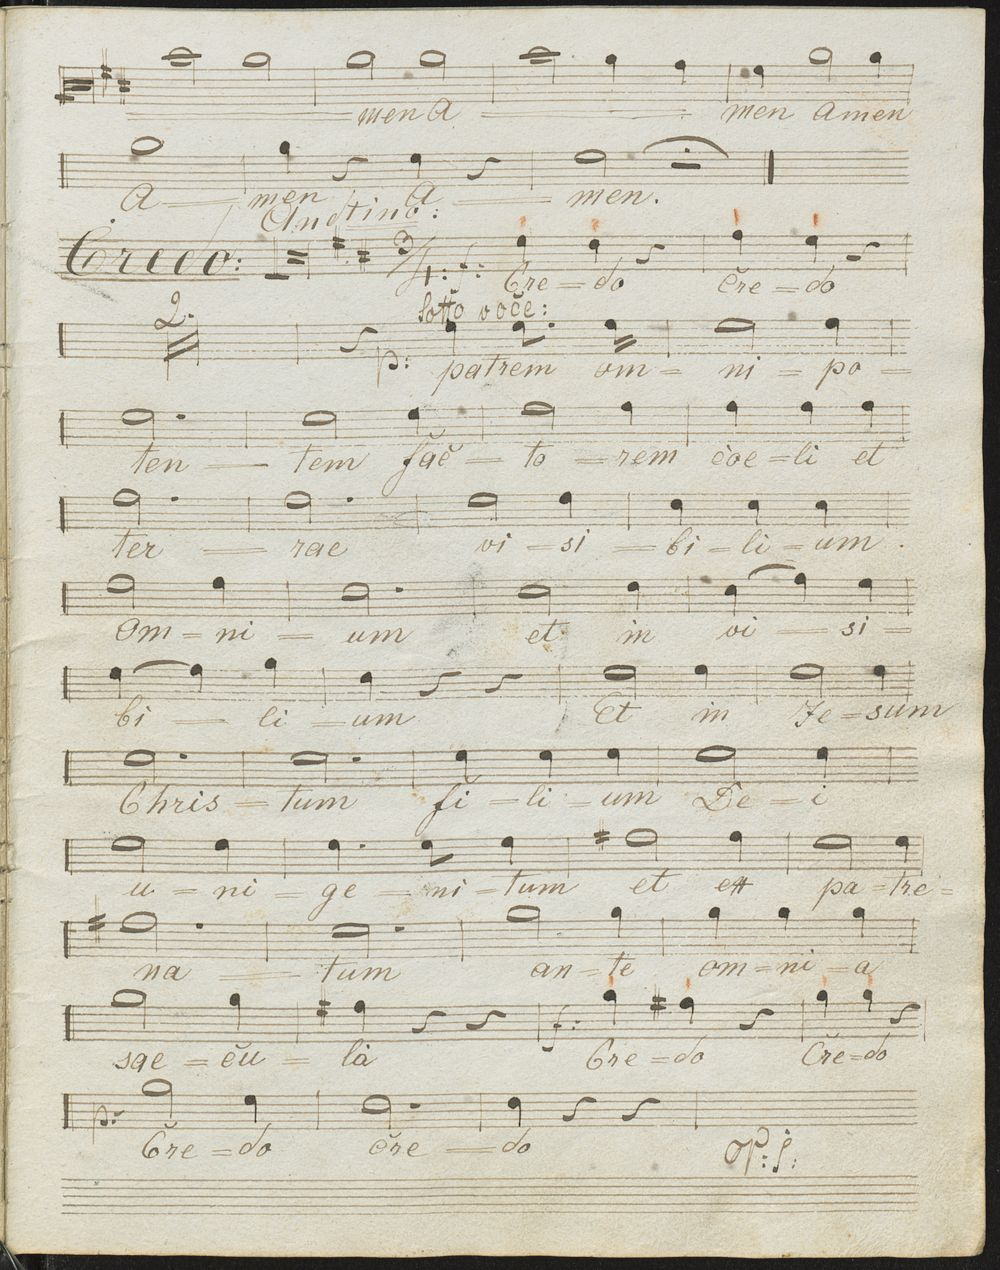 men A men Amen
A men A men.
Andtino:
Credo: 3/4: f: Cre = do Cre = do
Sotto voce:
2. p: patrem om = ni = po =
ten tem fac to rem coe = li et
ter rae vi = si = bi = li = um
Om = ni um et in vi si =
bi li um Et in Je = sum
Chris = tum fi = li = um De = i
u = ni = ge = ni = tum et ex pa = tre =
na tum an = te om = ni = a
sae = cu = la f: Cre = do Cre = do
p: Cre = do cre do